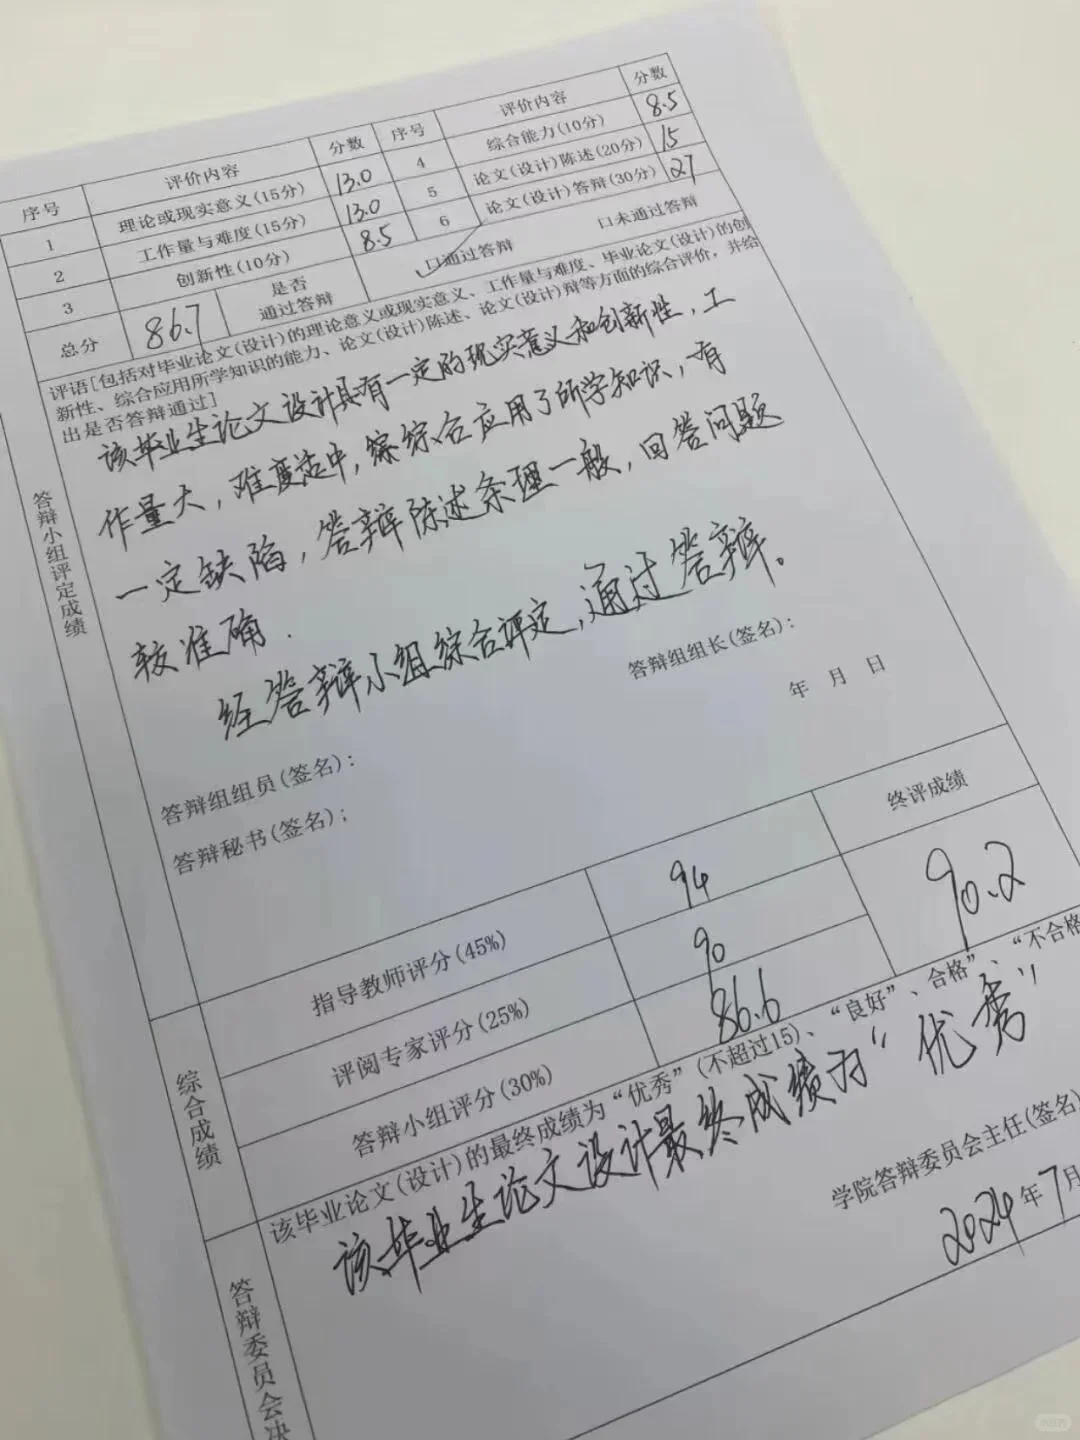 序号 评价内容 分数 序号 评价内容 分数
1 理论或现实意义(15分) 13.0 4 综合能力(10分) 8.5
2 工作量与难度(15分) 13.0 5 论文(设计)陈述(20分) 15
3 创新性(10分) 8.5 6 论文(设计)答辩(30分) 27
总分 86.7 是否通过答辩 口通过答辩 口未通过答辩
答辩小组评定成绩
评语[包括对毕业论文(设计)的理论意义或现实意义、工作量与难度、毕业论文(设计)的创
新性、综合应用所学知识的能力、论文(设计)陈述、论文(设计)辩等方面的综合评价,并给
出是否答辩通过]
该毕业生论文设计具有一定的现实意义和创新性,工
作量大,难度适中,综综合应用了所学知识,有
一定缺陷,答辩陈述条理一般,回答问题
较准确.
经答辩小组综合评定,通过答辩。
答辩组组长(签名):
年 月 日
答辩组组员(签名):
答辩秘书(签名);
综合成绩
指导教师评分(45%) 94 终评成绩
评阅专家评分(25%) 90 90.2
答辩小组评分(30%) 86.6
答辩委员会决
该毕业论文(设计)的最终成绩为“优秀”(不超过15)、“良好”、合格”、“不合格
该毕业生论文设计最终成绩为“优秀”
学院答辩委员会主任(签名)
2024年7月